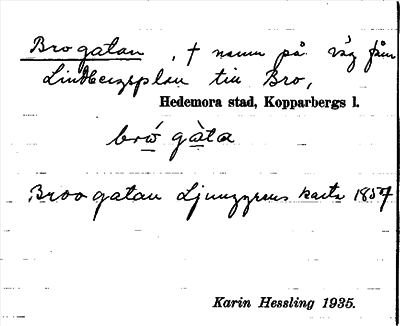 Brogatan, † namn på väg från
Lindbergsplan till Bro,
Hedemora stad, Kopparbergs l.
brώ gàta
Broogatan Ljunggrens karta 1857
Karin Hessling 1935.